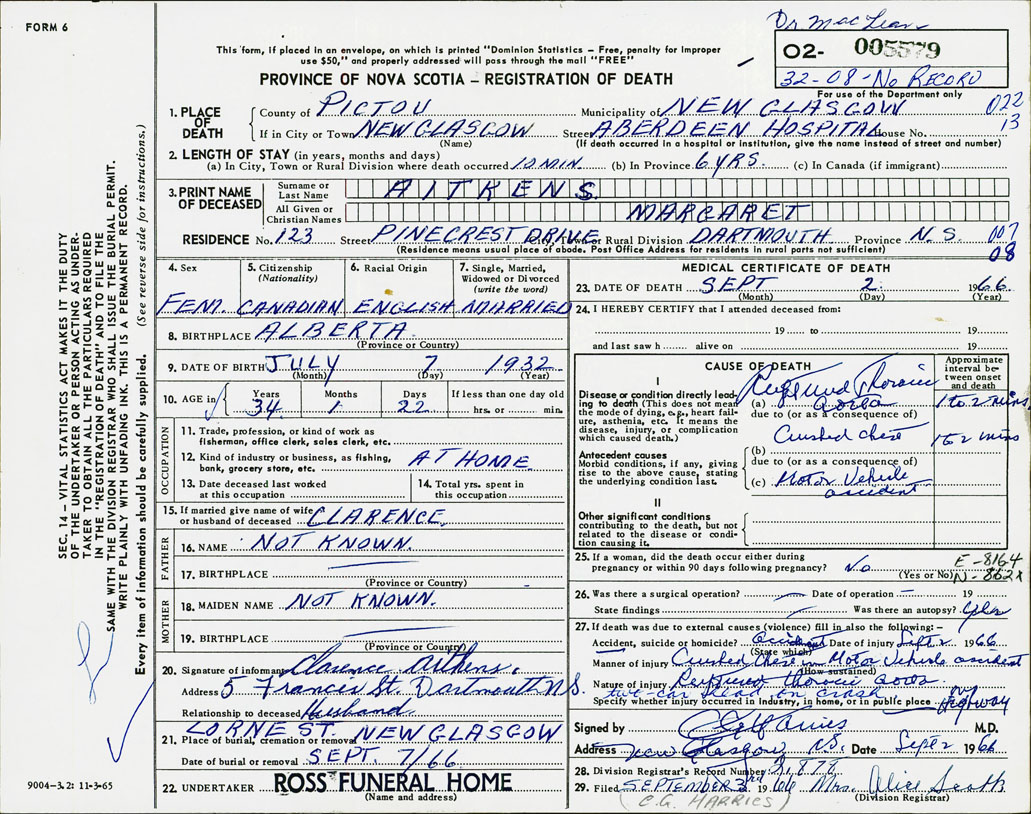 FORM 6
Dr. MacLean
This form, if placed in an envelope, on which is printed "Dominion Statistics – Free, penalty for improper
use $50," and properly addressed will pass through the mail "FREE"
02- 005579
32-08-No RECORD
For use of the Department only
PROVINCE OF NOVA SCOTIA – REGISTRATION OF DEATH
1. PLACE OF DEATH
County of PICTOU Municipality of NEW GLASGOW 022
If in City or Town NEW GLASGOW Street ABERDEEN HOSPITAL House No. 13
(Name) (If death occurred in a hospital or institution, give the name instead of street and number)
2. LENGTH OF STAY (in years, months and days)
(a) In City, Town or Rural Division where death occurred 10 MIN. (b) In Province 6 YRS. (c) In Canada (if immigrant)
3. PRINT NAME OF DECEASED
Surname or Last Name AITKENS
All Given or Christian Names MARGARET
RESIDENCE No. 123 Street PINECREST DRIVE City, Town or Rural Division DARTMOUTH Province N.S. 007
(Residence means usual place of abode. Post Office Address for residents in rural parts not sufficient) 08
4. Sex
5. Citizenship (Nationality)
6. Racial Origin
7. Single, Married, Widowed or Divorced (write the word)
FEM. CANADIAN ENGLISH MARRIED
8. BIRTHPLACE ALBERTA
(Province or Country)
9. DATE OF BIRTH JULY 7 1932
(Month) (Day) (Year)
10. AGE in Years Months Days If less than one day old
34 1 22 hrs. or min.
OCCUPATION
11. Trade, profession, or kind of work as
fisherman, office clerk, sales clerk, etc.
12. Kind of industry or business, as fishing,
bank, grocery store, etc. AT HOME
13. Date deceased last worked
at this occupation
14. Total yrs. spent in
this occupation
15. If married give name of wife
or husband of deceased CLARENCE
FATHER
16. NAME NOT KNOWN.
17. BIRTHPLACE
(Province or Country)
MOTHER
18. MAIDEN NAME NOT KNOWN.
19. BIRTHPLACE
(Province or Country)
20. Signature of informant Clarence Aitkens.
Address 5 Francis St. Dartmouth N.S.
Relationship to deceased Husband
LORNE ST. NEW GLASGOW
21. Place of burial, cremation or removal
Date of burial or removal SEPT. 7/66
22. UNDERTAKER ROSS FUNERAL HOME
(Name and address)
MEDICAL CERTIFICATE OF DEATH
23. DATE OF DEATH SEPT 2. 1966
(Month) (Day) (Year)
24. I HEREBY CERTIFY that I attended deceased from:
19 to 19
and last saw h alive on 19
CAUSE OF DEATH
Approximate interval between onset and death
I
Disease or condition directly leading to death (This does not mean the mode of dying, e.g., heart failure, asthenia, etc. It means the disease, injury, or complication which caused death.)
(a) Ruptured Thoracic Aorta 1 to 2 mins
due to (or as a consequence of)
Crushed chest
(b) 1 to 2 mins
due to (or as a consequence of)
(c) Motor Vehicle accident
Antecedent causes
Morbid conditions, if any, giving rise to the above cause, stating the underlying condition last.
II
Other significant conditions contributing to the death, but not related to the disease or condition causing it.
25. If a woman, did the death occur either during
pregnancy or within 90 days following pregnancy? No (Yes or No)
E-8164
N-862X
26. Was there a surgical operation? Date of operation 19
State findings Was there an autopsy? Yes
27. If death was due to external causes (violence) fill in also the following: –
Accident, suicide or homicide? Accident Date of injury Sept 2 1966
(State which)
Manner of injury Crushed Chest in Motor Vehicle accident
(How sustained)
Nature of injury Ruptured Thoracic Aorta.
two-car head on crash
Specify whether injury occurred in industry, in home, or in public place Highway
Signed by M.D.
Address New Glasgow N.S. Date Sept 2 1966
28. Division Registrar's Record Number
29. Filed SEPTEMBER 3rd 1966 Mrs. Alice Scott
(Division Registrar)
(C.G. HARRIES)
SEC. 14 – VITAL STATISTICS ACT MAKES IT THE DUTY
OF THE UNDERTAKER OR PERSON ACTING AS UNDER-
TAKER TO OBTAIN ALL THE PARTICULARS REQUIRED
IN THE "REGISTRATION OF DEATH" AND TO FILE THE
SAME WITH THE DIVISION REGISTRAR WHO SHALL ISSUE THE BURIAL PERMIT.
WRITE PLAINLY WITH UNFADING INK. THIS IS A PERMANENT RECORD.
Every item of information should be carefully supplied. (See reverse side for instructions.)
9004-3.2: 11-3-65